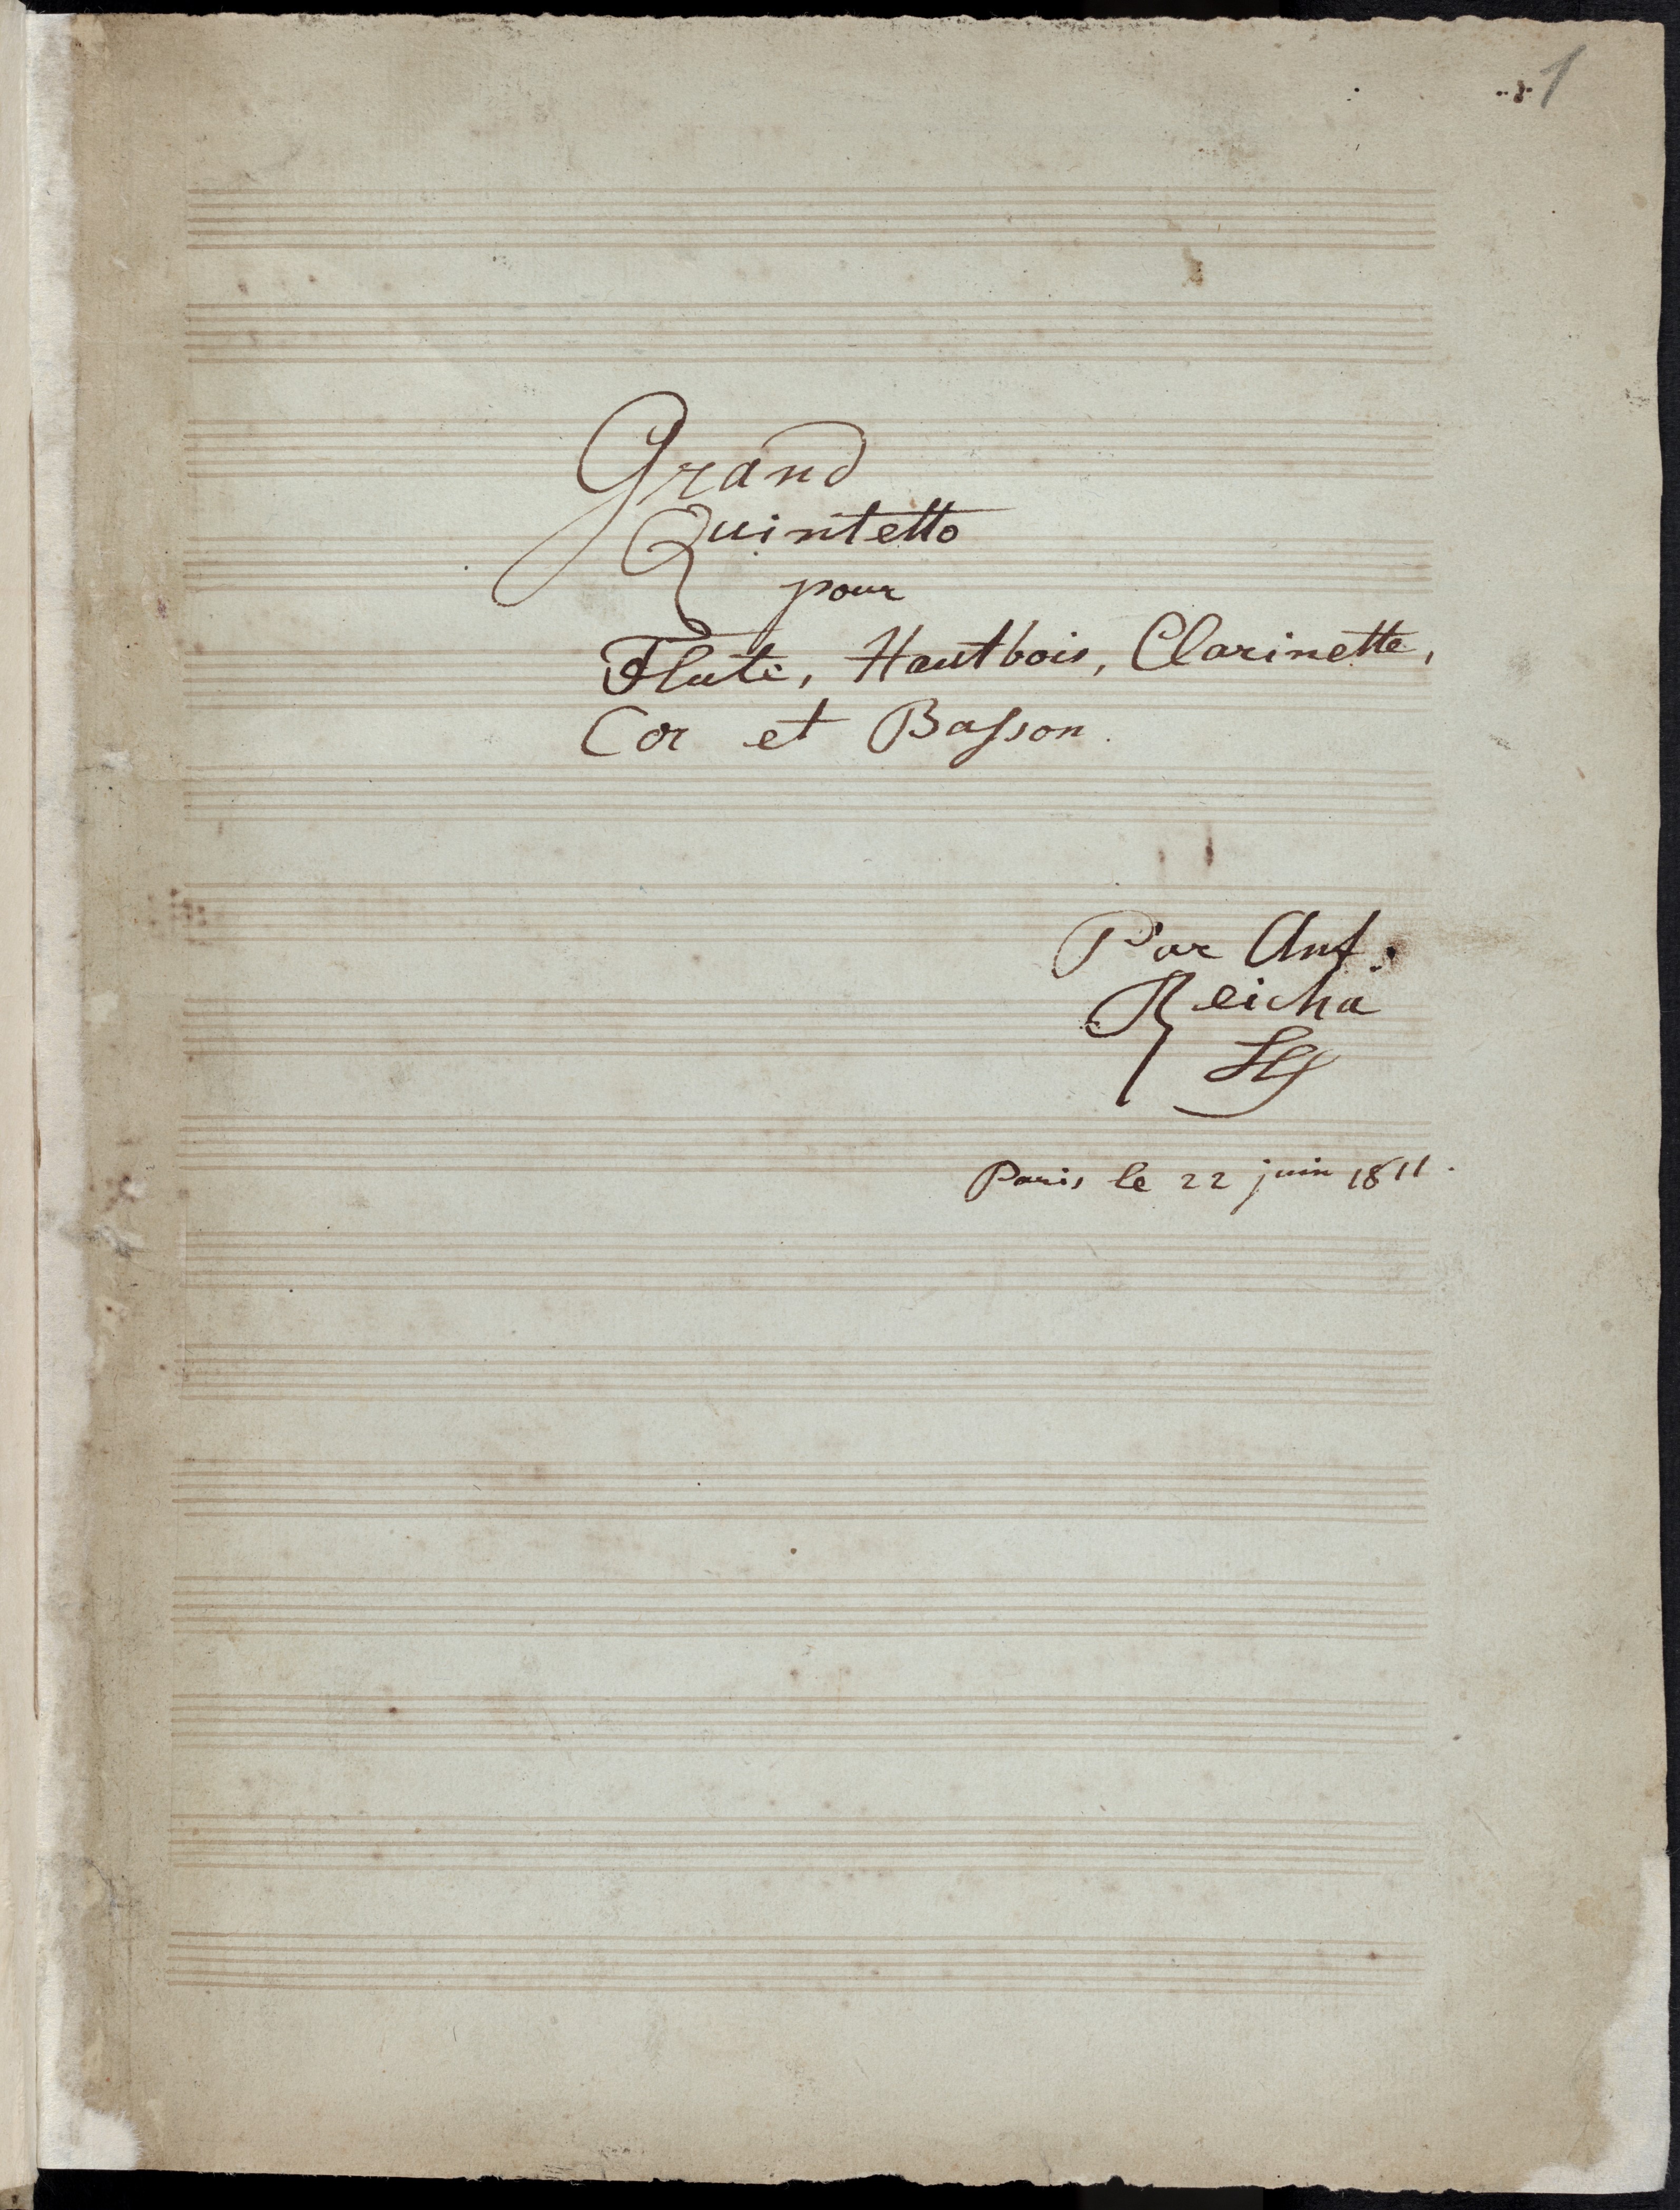 1
Grand
Quintetto
pour
Flute, Hautbois, Clarinette,
Cor et Baſson.
Par Ant.
Reicha
Paris le 22 juin 1811.